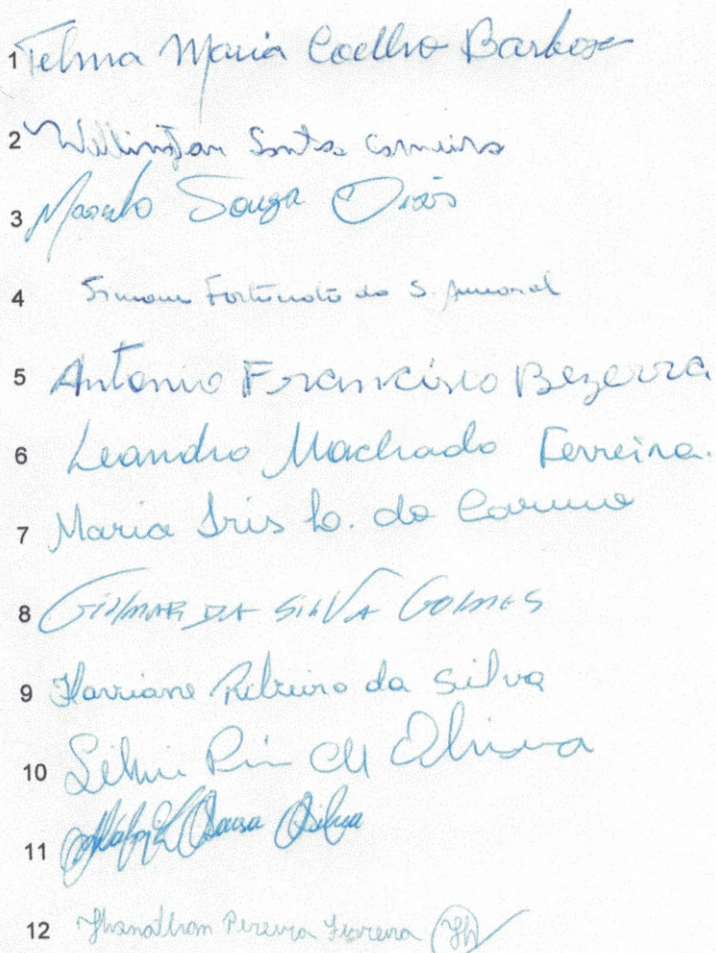 1 Telma Maria Coelho Barbosa
2 Wellington Santos Carneiro
3 Marcelo Souza Dias
4 Simone Fortunato da S. Amaral
5 Antonio Francisco Bezerra
6 Leandro Machado Ferreira.
7 Maria Iris L. do Carmo
8 Gilmar DA SILVA GOMES
9 Ribeiro da Silva
10 Oliveira
11 Sousa Silva
12 Jhonatham Pereira Ferreira